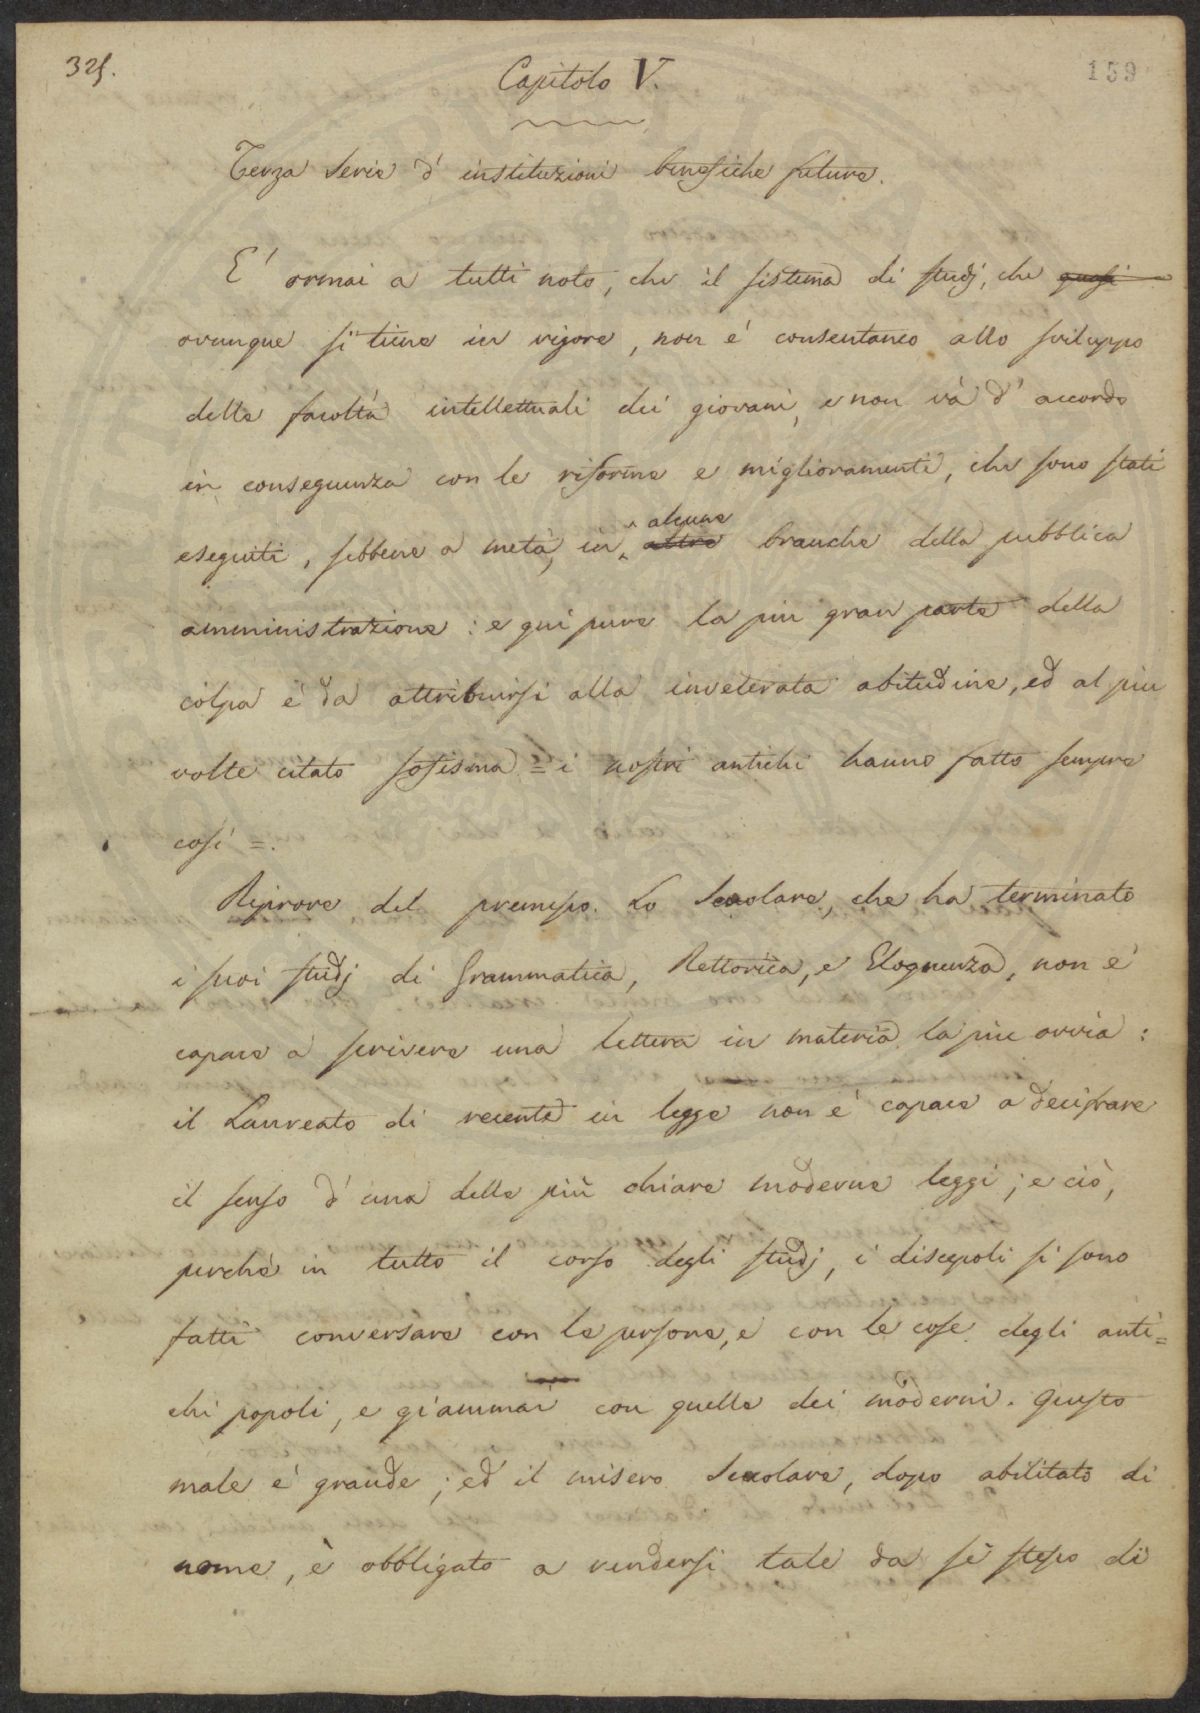 325.
Capitolo V.
159
Terza serie d' instituzioni benefiche future.
E' ormai a tutti noto, che il sistema di studj, che quasi
ovunque si tiene in vigore, non é consentaneo allo sviluppo
delle facoltà intellettuali dei giovani, e non và d' accordo
in conseguenza con le riforme e miglioramenti, che sono stati
eseguiti, sebbene a metà, in altre alcune branche della pubblica
amministrazione : e qui pure la piu gran parte della
colpa é da attribuirsi alla inveterata abitudine, ed al piu
volte citato sofisma = i nostri antichi hanno fatto sempre
cosí =.
Riprove del premesso. Lo Scolare, che ha terminato
i suoi studj di Grammatica, Rettorica, e Eloquenza, non é
capace a scrivere una lettera in materia la piu ovvia :
il Laureato di recente in legge non é capace a decifrare
il senso d' una delle più chiare moderne leggi ; e ciò,
perché in tutto il corso degli studj, i discepoli si sono
fatti conversare con le persone, e con le cose degli anti=
chi popoli, e giammai con quelle dei moderni. Questo
male é grande ; ed il misero Scolare, dopo abilitato di
nome, è obbligato a rendersi tale da sé stesso di